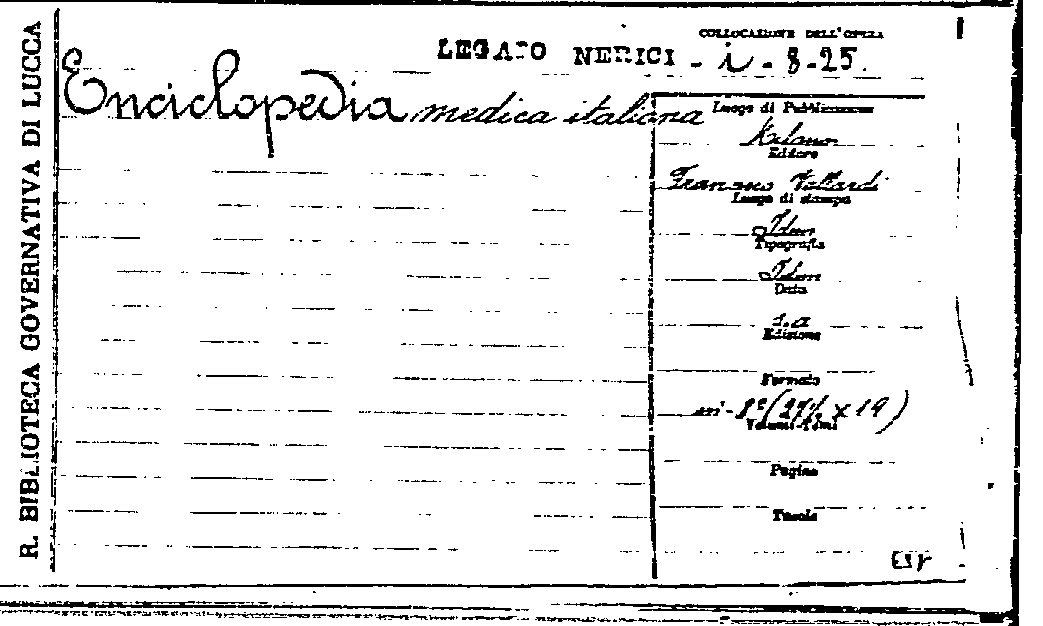 R. BIBLIOTECA GOVERNATIVA DI LUCCA
COLLOCAZIONE DELL'OPERA
LEGATO NERICI - i - 8-25.
Enciclopedia medica italiana
Luogo di Pubblicazione
Milano
Editore
Francesco Vallardi
Luogo di stampa
Idem
Tipografia
Idem
Data
s.a
Edizione
Formato
in-8º (27½ x 19)
Volumi-Tomi
Pagine
Tavole